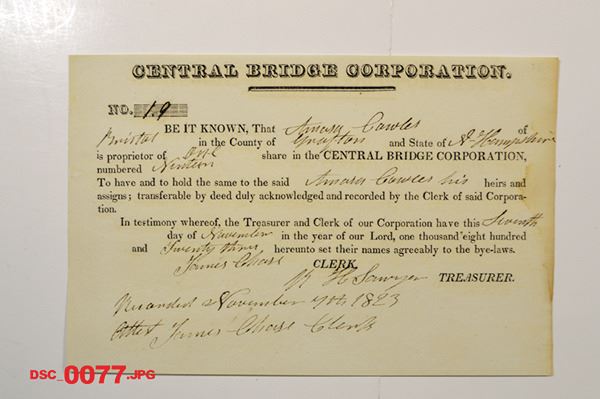 CENTRAL BRIDGE CORPORATION.
NO. 19
BE IT KNOWN, That Amasa Cowles of
Bristol in the County of Grafton and State of N Hampshire
is proprietor of one share in the CENTRAL BRIDGE CORPORATION,
numbered Ninteen
To have and to hold the same to the said Amasa Cowles his heirs and
assigns; transferable by deed duly acknowledged and recorded by the Clerk of said Corpora-
tion.
In testimony whereof, the Treasurer and Clerk of our Corporation have this Seventh
day of November in the year of our Lord, one thousand eight hundred
and Twenty three, hereunto set their names agreeably to the bye-laws.
James Chase CLERK.
R H Sawyer TREASURER.
Recorded November 7th 1823
Attest James Chase Clerk
DSC_0077.JPG